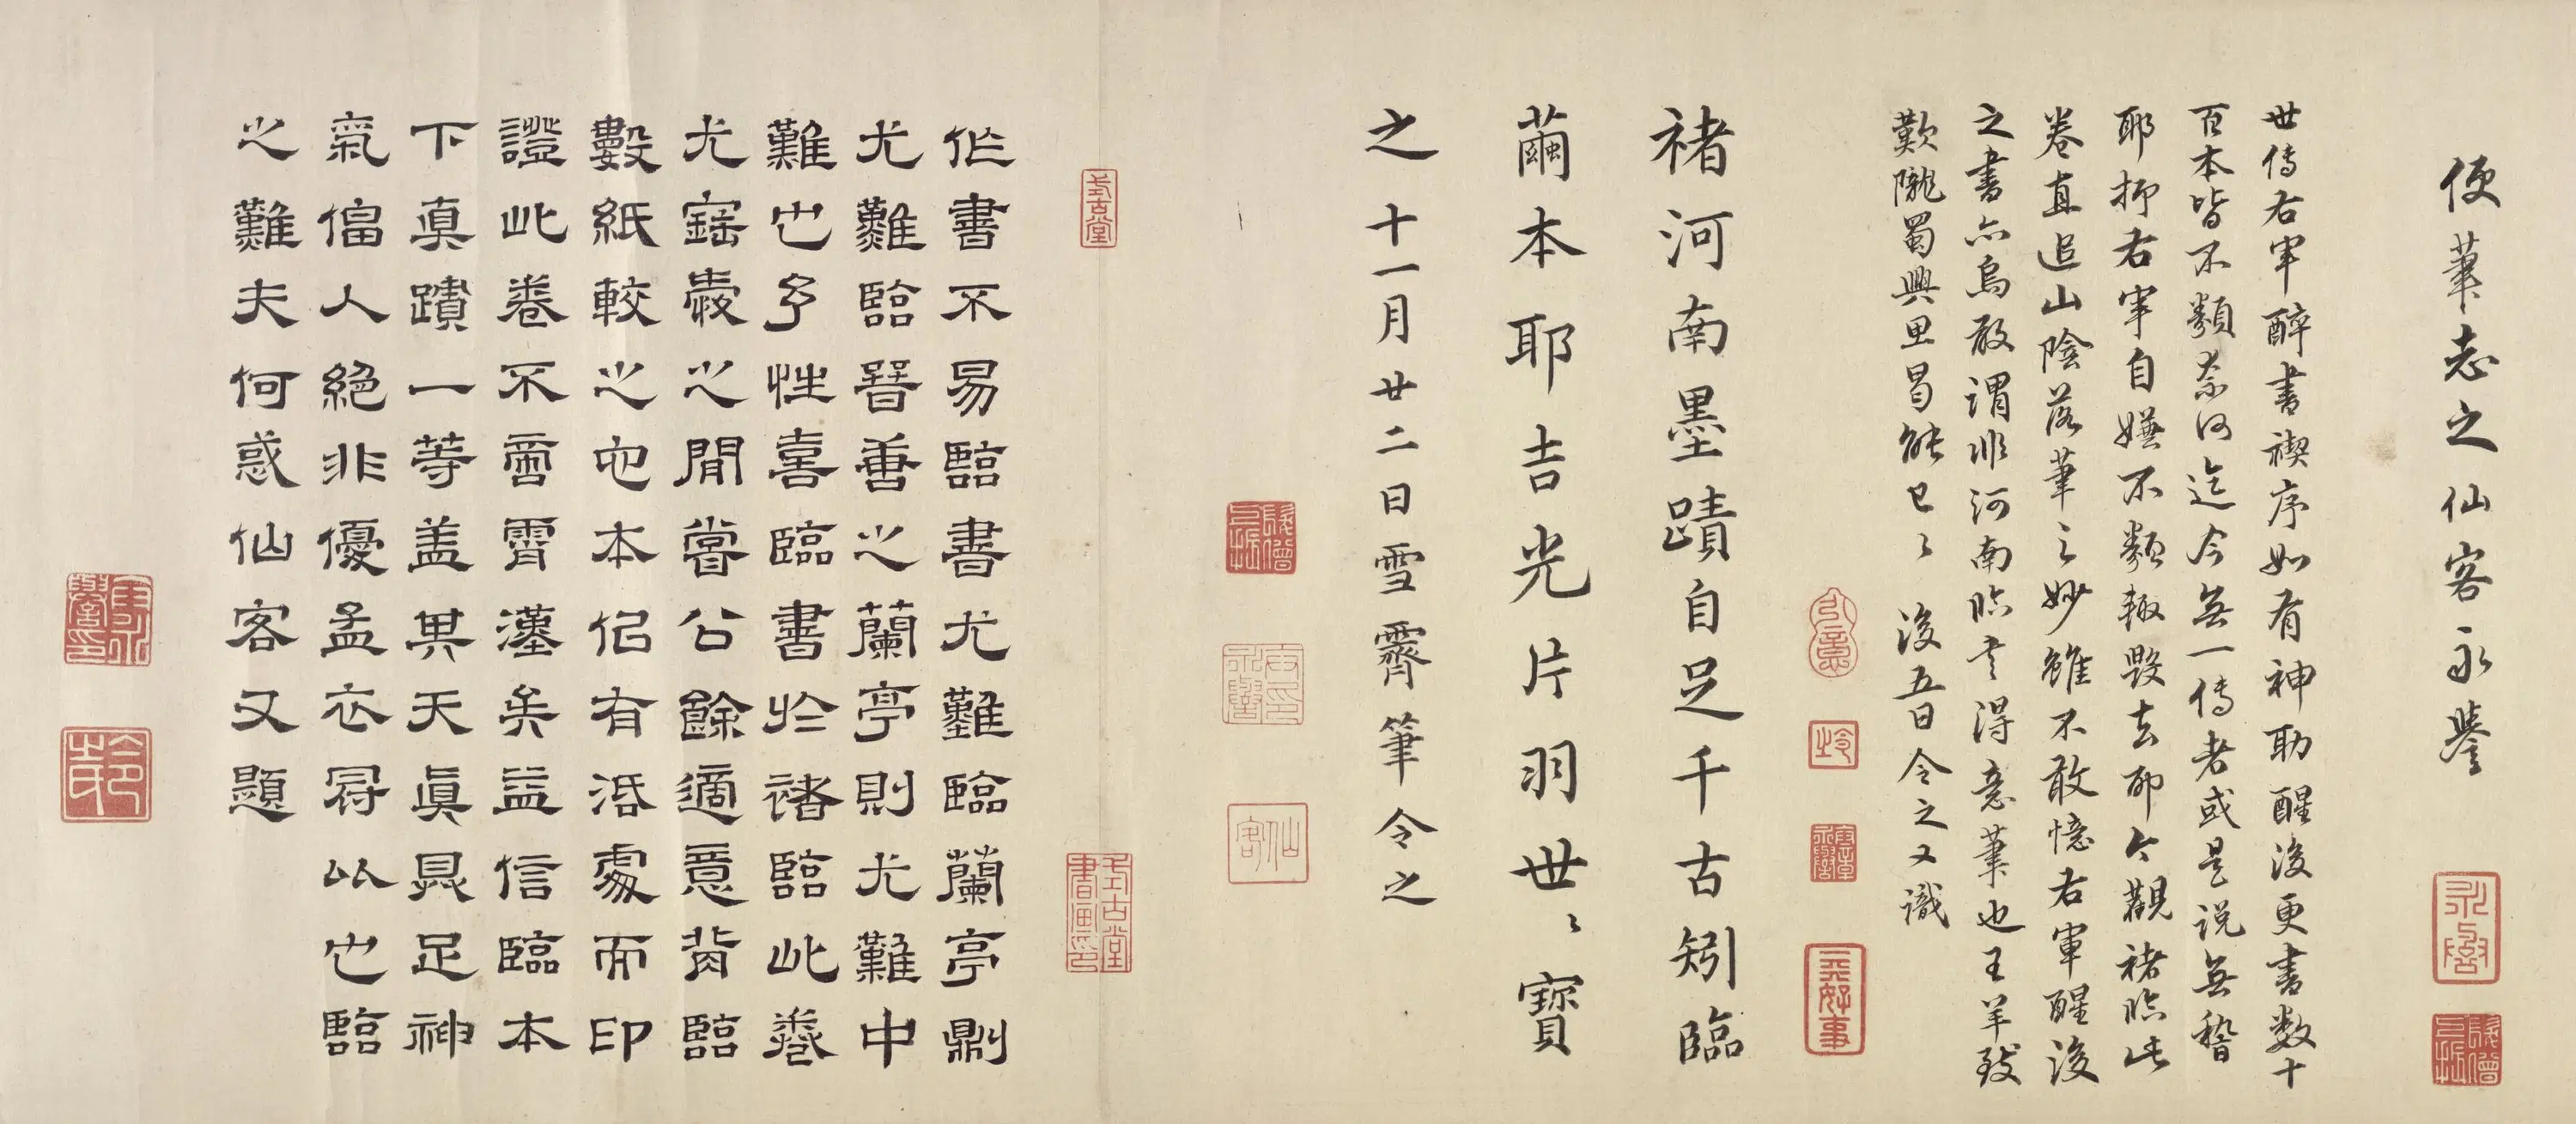 便筆志之仙客永譽
世傳右軍醉書禊序如有神助醒後更書數十
百本皆不類奈何迄今無一傳者或是說無稽
耶抑右軍自嫌不類輙毀去耶今觀褚臨此
卷直追山陰落筆之妙雖不敢憶右軍醒後
之書亦烏敢謂非河南臨本得意筆也王羊致
歎隴蜀興思曷能已〻 後五日令之又識
褚河南墨蹟自足千古矧臨
蘭本耶吉光片羽世〻寶
之十一月廿二日雪霽筆令之
作書不易臨書尤難臨蘭亭則
尤難臨晉善之蘭亭則尤難中
難也予性喜臨書於褚臨此卷
尤寤寐之間嘗公餘適意背臨
數紙較之他本侣有活處而印
證此卷不啻霄漢矣益信臨本
下真蹟一等盖異天真具足神
氣偪人絕非優孟衣冠以也臨
之難夫何惑仙客又題
式古堂
式古堂書画印
仙客